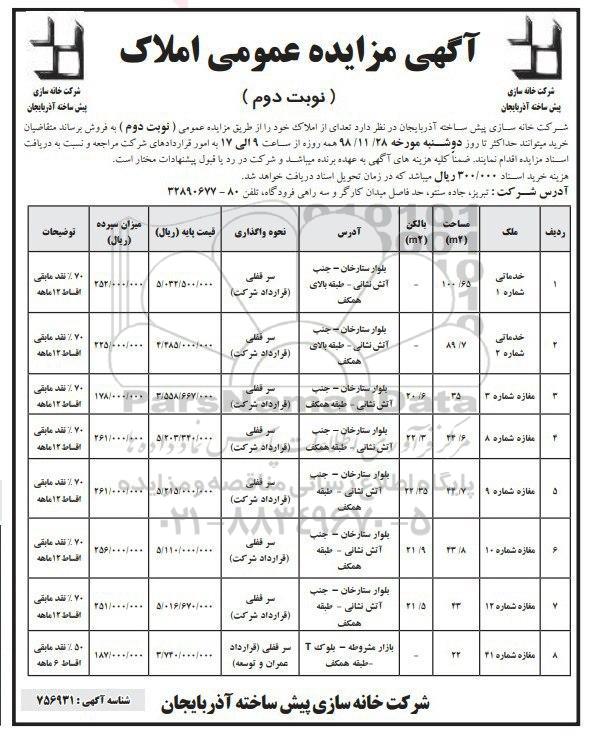 آگهی مزایده عمومی املاک
( نوبت دوم )
شرکت خانه سازی
پیش ساخته آذربایجان
شرکت خانه سازی
پیش ساخته آذربایجان
شرکت خانه سازی پیش ساخته آذربایجان در نظر دارد تعدای از املاک خود را از طریق مزایده عمومی ( نوبت دوم ) به فروش برساند متقاضیان
خرید میتوانند حداکثر تا روز دوشنبه مورخه ۹۸/۱۱/۲۸ همه روزه از ساعت ۹ الی ۱۷ به امور قراردادهای شرکت مراجعه و نسبت به دریافت
اسناد مزایده اقدام نمایند. ضمناً کلیه هزینه های آگهی به عهده برنده میباشد و شرکت در رد یا قبول پیشنهادات مختار است.
هزینه خرید اسناد ۳۰۰/۰۰۰ ریال میباشد که در زمان تحویل اسناد دریافت خواهد شد.
آدرس شرکت : تبریز، جاده سنتو، حد فاصل میدان کارگر و سه راهی فرودگاه، تلفن ۸۰ - ۳۲۸۹۰۶۷۷
ردیف ملک مساحت (m۲) بالکن (m۲) آدرس نحوه واگذاری قیمت پایه (ریال) میزان سپرده (ریال) توضیحات
۱ خدماتی شماره ۱ ۱۰۰/۶۵ - بلوار ستارخان – جنب آتش نشانی - طبقه بالای همکف سر قفلی (قرارداد شرکت) ۵/۰۳۲/۵۰۰/۰۰۰ ۲۵۲/۰۰۰/۰۰۰ ۷۰٪ نقد مابقی اقساط ۱۲ماهه
۲ خدماتی شماره ۲ ۸۹/۷ - بلوار ستارخان – جنب آتش نشانی - طبقه بالای همکف سر قفلی (قرارداد شرکت) ۴/۴۸۵/۰۰۰/۰۰۰ ۲۲۵/۰۰۰/۰۰۰ ۷۰٪ نقد مابقی اقساط ۱۲ماهه
۳ مغازه شماره ۳ ۳۵ ۲۰/۶ بلوار ستارخان – جنب آتش نشانی - طبقه همکف سر قفلی (قرارداد شرکت) ۳/۵۵۸/۶۶۷/۰۰۰ ۱۷۸/۰۰۰/۰۰۰ ۷۰٪ نقد مابقی اقساط ۱۲ماهه
۴ مغازه شماره ۸ ۴۴/۶ ۲۲/۳ بلوار ستارخان – جنب آتش نشانی - طبقه همکف سر قفلی (قرارداد شرکت) ۵/۲۰۳/۳۴۰/۰۰۰ ۲۶۱/۰۰۰/۰۰۰ ۷۰٪ نقد مابقی اقساط ۱۲ماهه
۵ مغازه شماره ۹ ۴۴/۷ ۲۲/۳۵ بلوار ستارخان – جنب آتش نشانی - طبقه همکف سر قفلی (قرارداد شرکت) ۵/۲۱۵/۰۰۰/۰۰۰ ۲۶۱/۰۰۰/۰۰۰ ۷۰٪ نقد مابقی اقساط ۱۲ماهه
۶ مغازه شماره ۱۰ ۴۳/۸ ۲۱/۹ بلوار ستارخان – جنب آتش نشانی - طبقه همکف سر قفلی (قرارداد شرکت) ۵/۱۱۰/۰۰۰/۰۰۰ ۲۵۶/۰۰۰/۰۰۰ ۷۰٪ نقد مابقی اقساط ۱۲ماهه
۷ مغازه شماره ۱۲ ۴۳ ۲۱/۵ بلوار ستارخان – جنب آتش نشانی - طبقه همکف سر قفلی (قرارداد شرکت) ۵/۰۱۶/۶۷۰/۰۰۰ ۲۵۱/۰۰۰/۰۰۰ ۷۰٪ نقد مابقی اقساط ۱۲ماهه
۸ مغازه شماره ۴۱ ۲۲ - بازار مشروطه – بلوک T -طبقه همکف سر قفلی (قرارداد عمران و توسعه) ۳/۷۴۰/۰۰۰/۰۰۰ ۱۸۷/۰۰۰/۰۰۰ ۵۰٪ نقد مابقی اقساط ۶ ماهه
ParsNamadData
پایگاه اطلاع رسانی مناقصه و مزایده
۰۲۱-۸۸۳۴۹۶۷۰-۵
شرکت خانه سازی پیش ساخته آذربایجان
شناسه آگهی : ۷۵۶۹۳۱